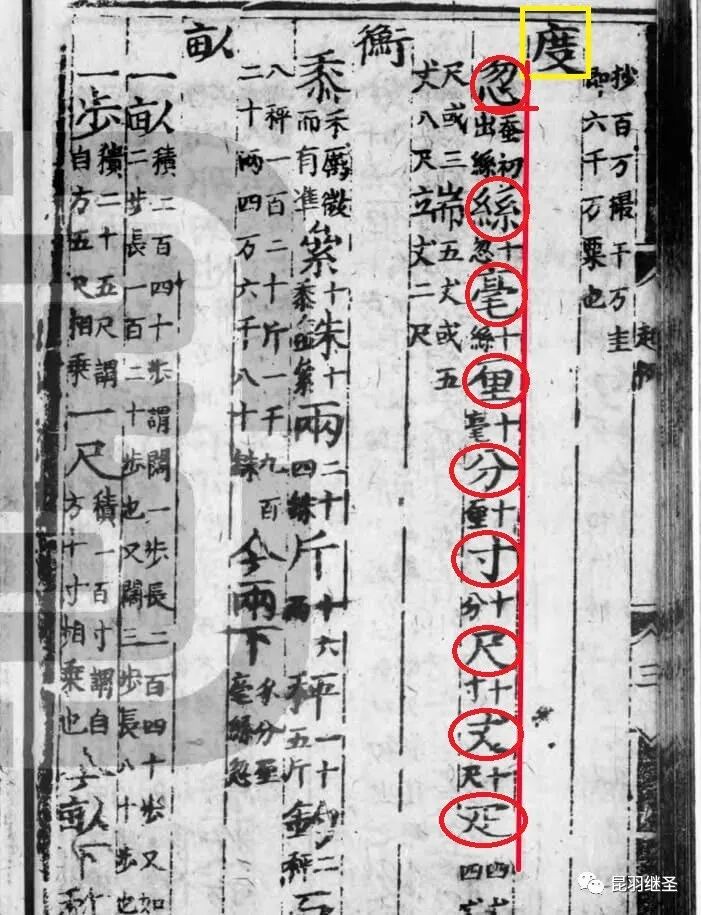 抄百万撮千万圭
即六千万粟也
三
度
忽蚕初出絲絲十忽毫十絲厘十毫分十厘寸十分尺十寸丈十尺疋四
尺或三丈八尺端五丈或五丈二尺
衡
黍禾属微而有準絫十黍銖十絫兩二十四銖斤十六兩秤一十五斤鈞二秤石
八秤一百二十斤一千九百二十兩四万六千八十銖今兩下分厘毫絲忽
畝
一畝積二百四十歩謂闊一歩長二百四十歩又如二歩長一百二十歩也又闊三歩長八十歩也
一歩積二十五尺謂自方五尺相乘一尺積一百寸謂自方十寸相乘也今畝下
昆羽继圣